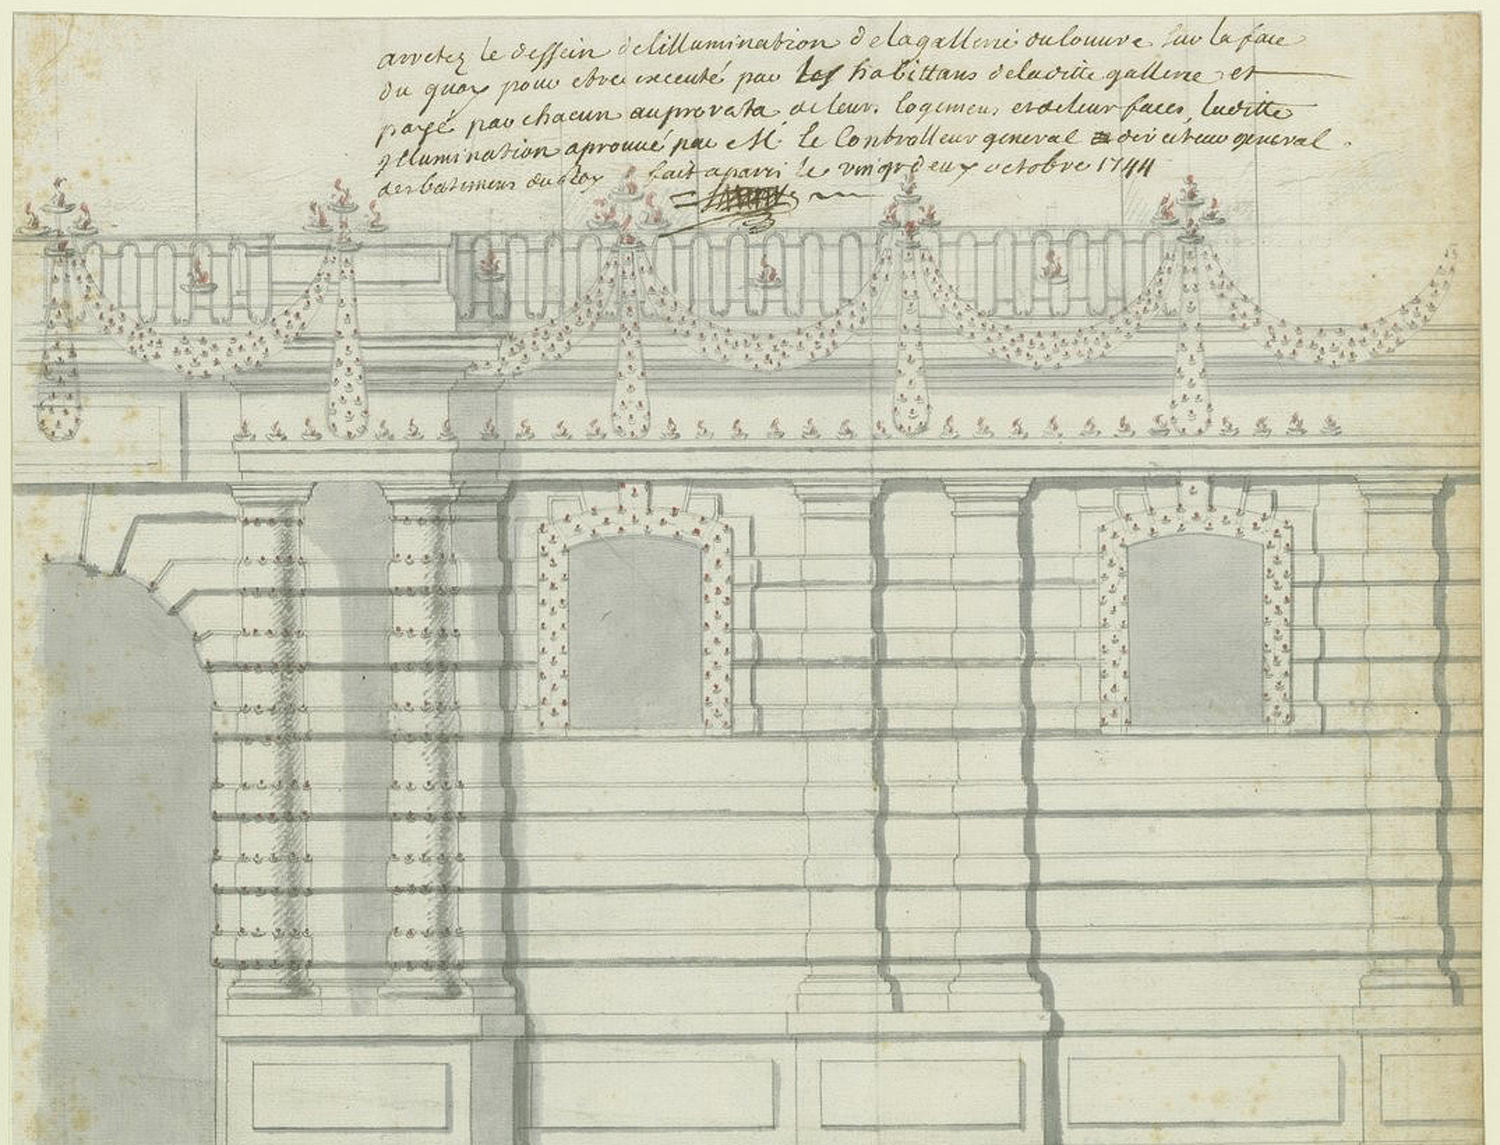 arretez le dessein de lillumination de la gallerie du louvre sur la face
du quay pour etre executé par les habittans de laditte gallerie et
payé par chacun au prorata de leurs logemens et de leur faces, laditte
jllumination aprouué par Mr. le Controlleur general directeur general
des batimens du Roy fait a paris le vingt deux octobre 1744